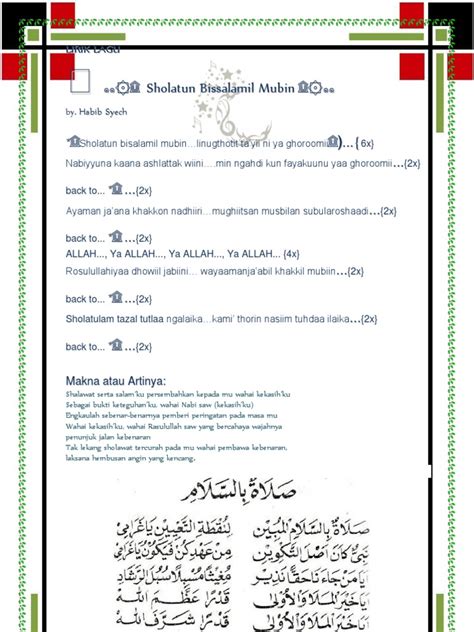 LIRIK LAGU
Sholatun Bissalamil Mubin
by. Habib Syech
Sholatun bisalamil mubin...linugthotit ta'yii ni ya ghoroomii)...{ 6x}
Nabiyyuna kaana ashlattak wiini....min ngahdi kun fayakuunu yaa ghoroomii...{2x}
back to... ...{2x}
Ayaman ja'ana khakkon nadhiiri...mughiitsan musbilan subularoshaadi...{2x}
back to... ...{2x}
ALLAH..., Ya ALLAH..., Ya ALLAH... {4x}
Rosulullahiyaa dhowiil jabiini... wayaamanja'abil khakkil mubiin...{2x}
back to... ...{2x}
Sholatulam tazal tutlaa ngalaika...kami' thorin nasiim tuhdaa ilaika...{2x}
back to... ...{2x}
Makna atau Artinya:
Shalawat serta salam'ku persembahkan kepada mu wahai kekasih'ku
Sebagai bukti keteguhan'ku, wahai Nabi saw (kekasih'ku)
Engkaulah sebenar-benarnya pemberi peringatan pada masa mu
Wahai kekasih'ku, wahai Rasulullah saw yang bercahaya wajahnya
penunjuk jalan kebenaran
Tak lekang sholawat tercurah pada mu wahai pembawa kebenaran,
laksana hembusan angin yang kencang.
صَلَاةٌ بِالسَّلَامِ
صَلَاةٌ بِالسَّلَامِ الْمُبِيْنِ لِنُقْطَةِ التَّعْيِيْنِ يَاغَرَامِيْ
نَبِيٌّ كَانَ اَصْلَ التَّكْوِيْنِ مِنْ عَهْدِ كُنْ فَيَكُوْنُ يَاغَرَامِيْ
اَيَا مَنْ جَاءَنَا حَقًّا نَذِيْرِ مُغِيْثًا مُسْبِلًا سُبُلَ الرَّشَادِ
يَا خَيْرَ الْمَلَا وَالْاُوْلٰى قَدْرًا عَظَّمَ اللهُ
يَا خَيْرَ الْمَلَا وَالْاُوْلٰى قَدْرًا شَرَّفَ اللهُ